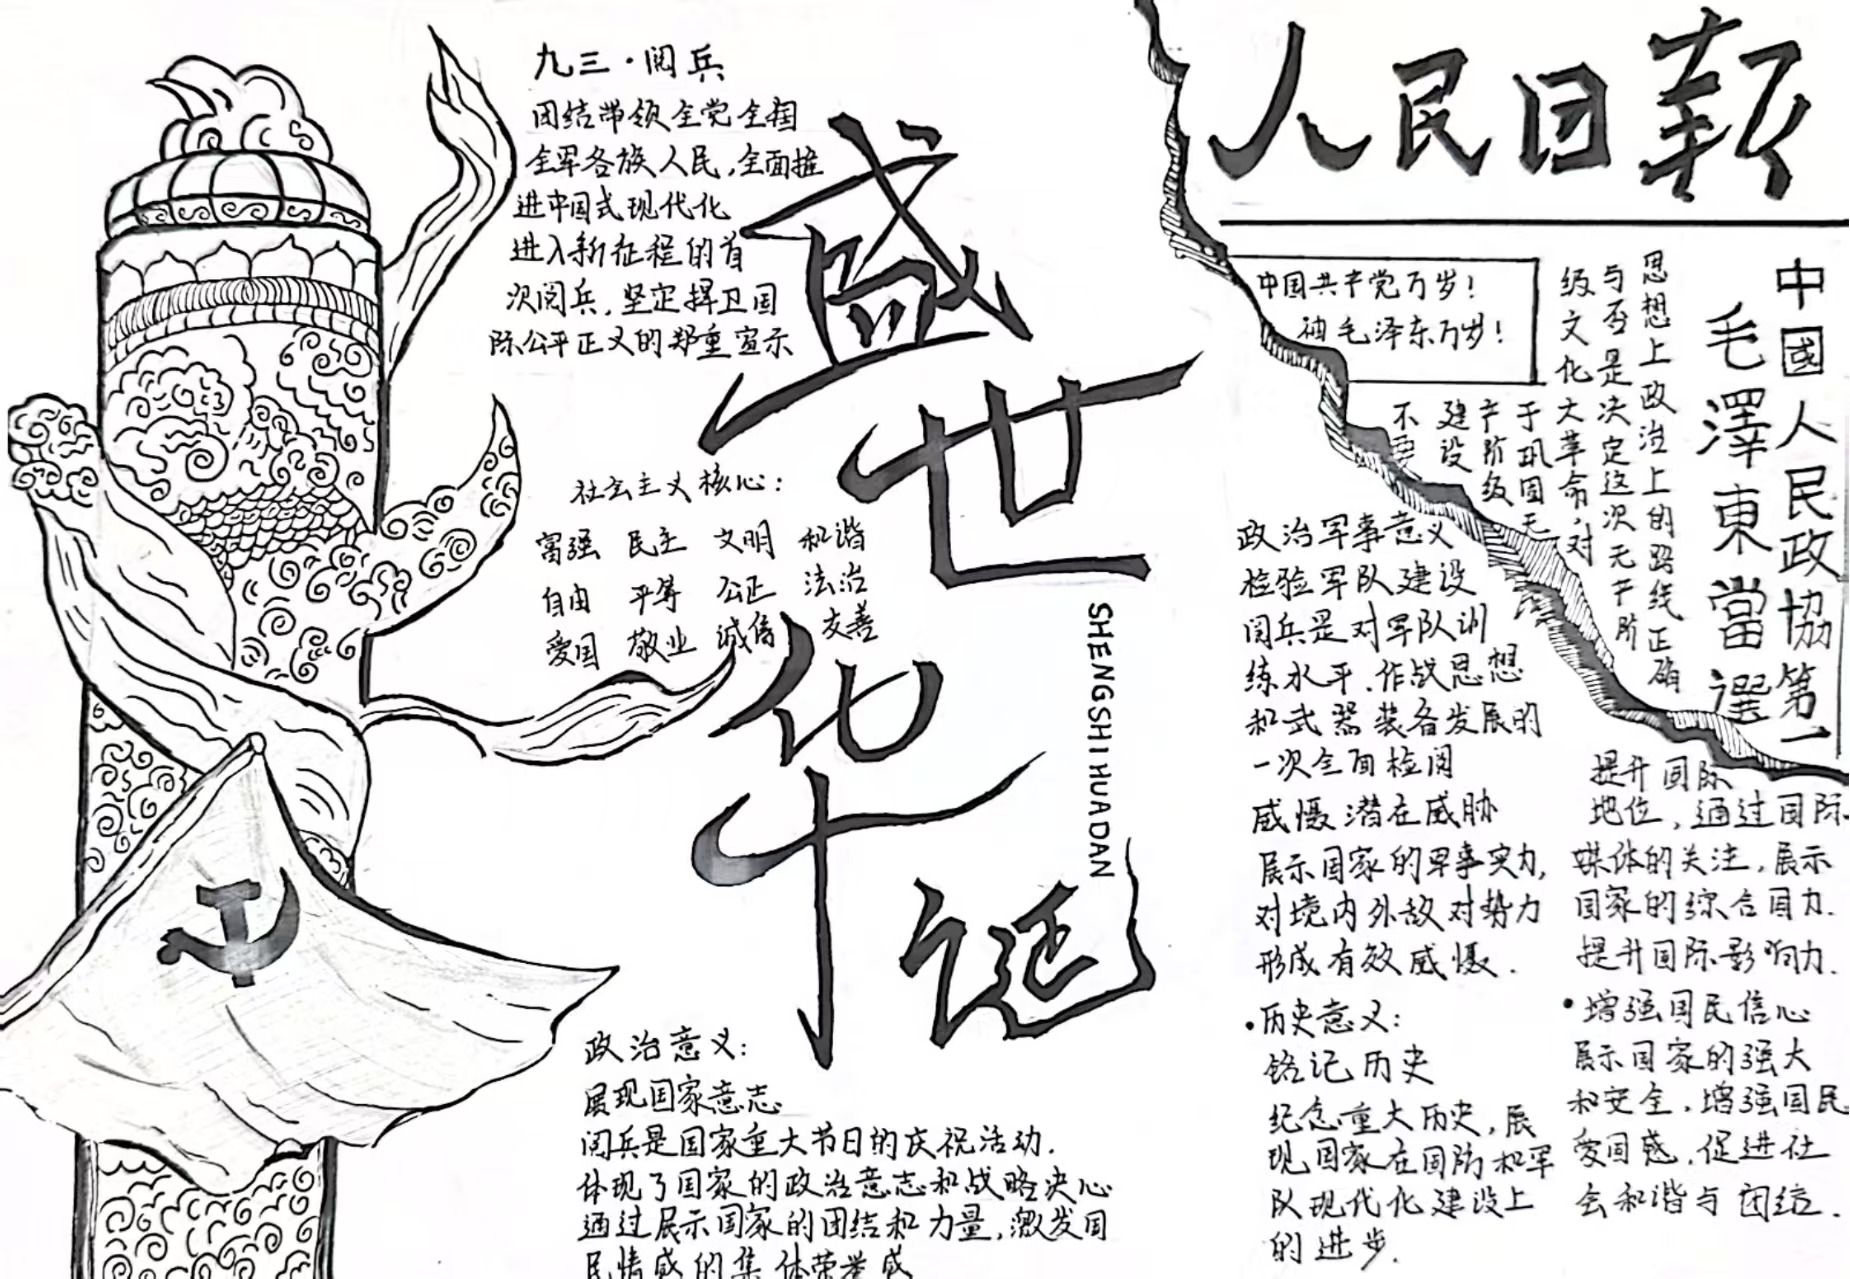 九三·阅兵
团结带领全党全国
全军各族人民,全面推
进中国式现代化
进入新征程的首
次阅兵,坚定捍卫国
际公平正义的郑重宣示
盛世华诞
SHENGSHI HUADAN
社会主义核心:
富强 民主 文明 和谐
自由 平等 公正 法治
爱国 敬业 诚信 友善
政治意义:
展现国家意志
阅兵是国家重大节日的庆祝活动.
体现了国家的政治意志和战略决心
通过展示国家的团结和力量,激发国
民情感的集体荣誉感
人民日报
中国共产党万岁!
毛泽东万岁!
中國人民政協第一
毛澤東當選
思想上政治上的路线正确
与否是决定这次无产阶
级文化大革命,对
于巩固无
产阶级
建设
不
政治军事意义
检验军队建设
阅兵是对军队训
练水平.作战思想
和武器装备发展的
一次全面检阅
威慑潜在威胁
展示国家的军事实力,
对境内外敌对势力
形成有效威慑.
·历史意义:
铭记历史
纪念重大历史,展
现国家在国防和军
队现代化建设上
的进步.
提升国际
地位,通过国际
媒体的关注,展示
国家的综合国力.
提升国际影响力.
·增强国民信心
展示国家的强大
和安全.增强国民
爱国感.促进社
会和谐与团结.